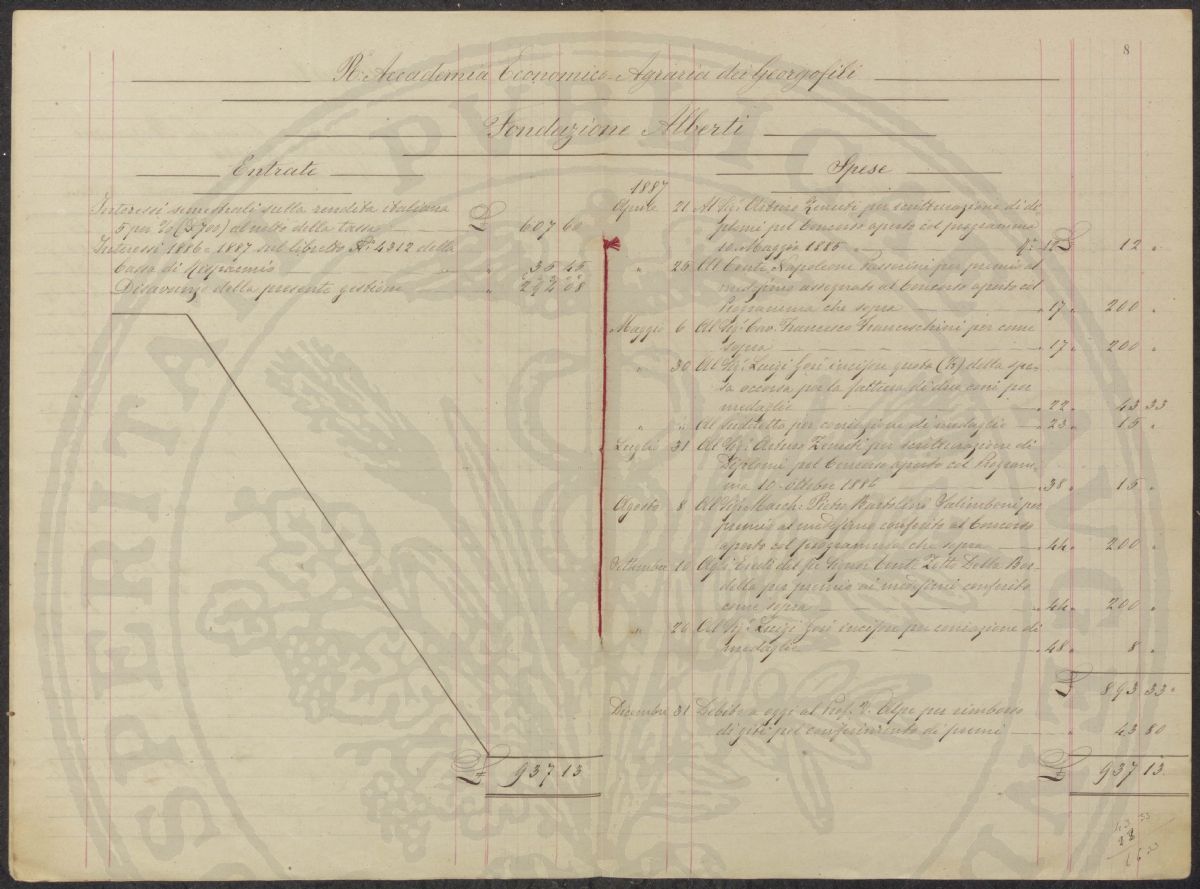 8
R. Accademia Economico-Agraria dei Georgofili
Fondazione Alberti
Entrate
Interessi semestrali sulla rendita italiana
5 per % (£ 700) al netto della tassa £ 607 60
Interessi 1886 e 1887 sul libretto N° 4312 della
Cassa di Risparmio " 35 45
Disavanzo della presente gestione " 294 08
£ 937 13
Spese
1887
Aprile 21 Al Sig. Arturo Zenuti per scritturazione di di-
plomi pel Concorso aperto col programma
10 Maggio 1885 N° 12 £ 12 "
" 25 Al Conte Napoleone Passerini per premio al
medesimo assegnato al Concorso aperto col
Programma che sopra " 17 " 200 "
Maggio 6 Al Sig. Cav. Francesco Franceschini per come
sopra " 17 " 200 "
" 30 Al Sig. Luigi Gori incisore quota (⅓) della spe-
sa occorsa per la fattura di due coni per
medaglie " 22 " 43 33
" " Al suddetto per coniazione di medaglie " 23 " 15 "
Luglio 31 Al Sig. Arturo Zenuti per scritturazione di
Diplomi pel Concorso aperto col Program-
ma 10 ottobre 1886 " 38 " 15 "
Agosto 8 Al Sig. March. Pietro Bartolini Salimbeni per
premio al medesimo conferito al Concorso
aperto col programma che sopra " 44 " 200 "
Settembre 10 Agli Eredi del fu Signor Conte Della
per premio ai medesimi conferito
come sopra " 44 " 200 "
" 26 Al Sig. Luigi Gori incisore per coniazione di
medaglie " 48 " 8 "
£ 893 33
Dicembre 31 Debito a oggi al Prof. V. Alpe per rimborso
di gite pel conferimento di premi " 43 80
£ 937 13